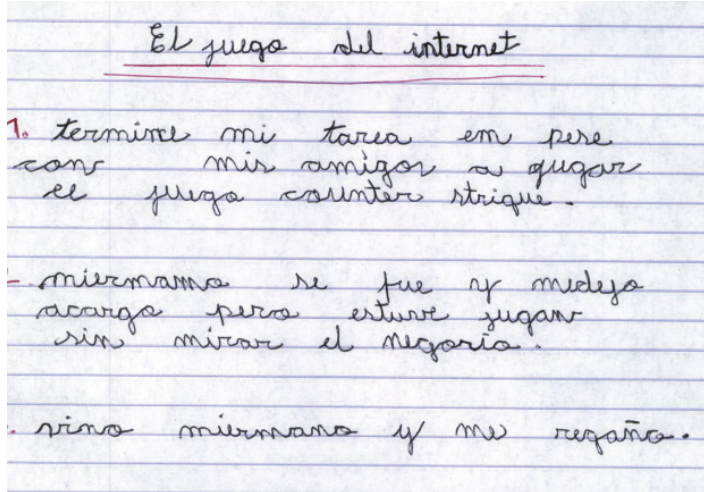 El juego del internet
1. termine mi tarea em pese
con mis amigos a gugar
el juego counter strique.
miermamo se fue y medejo
acargo pero estuve juganr
sin mirar el negorio.
vino miermano y me regaño.